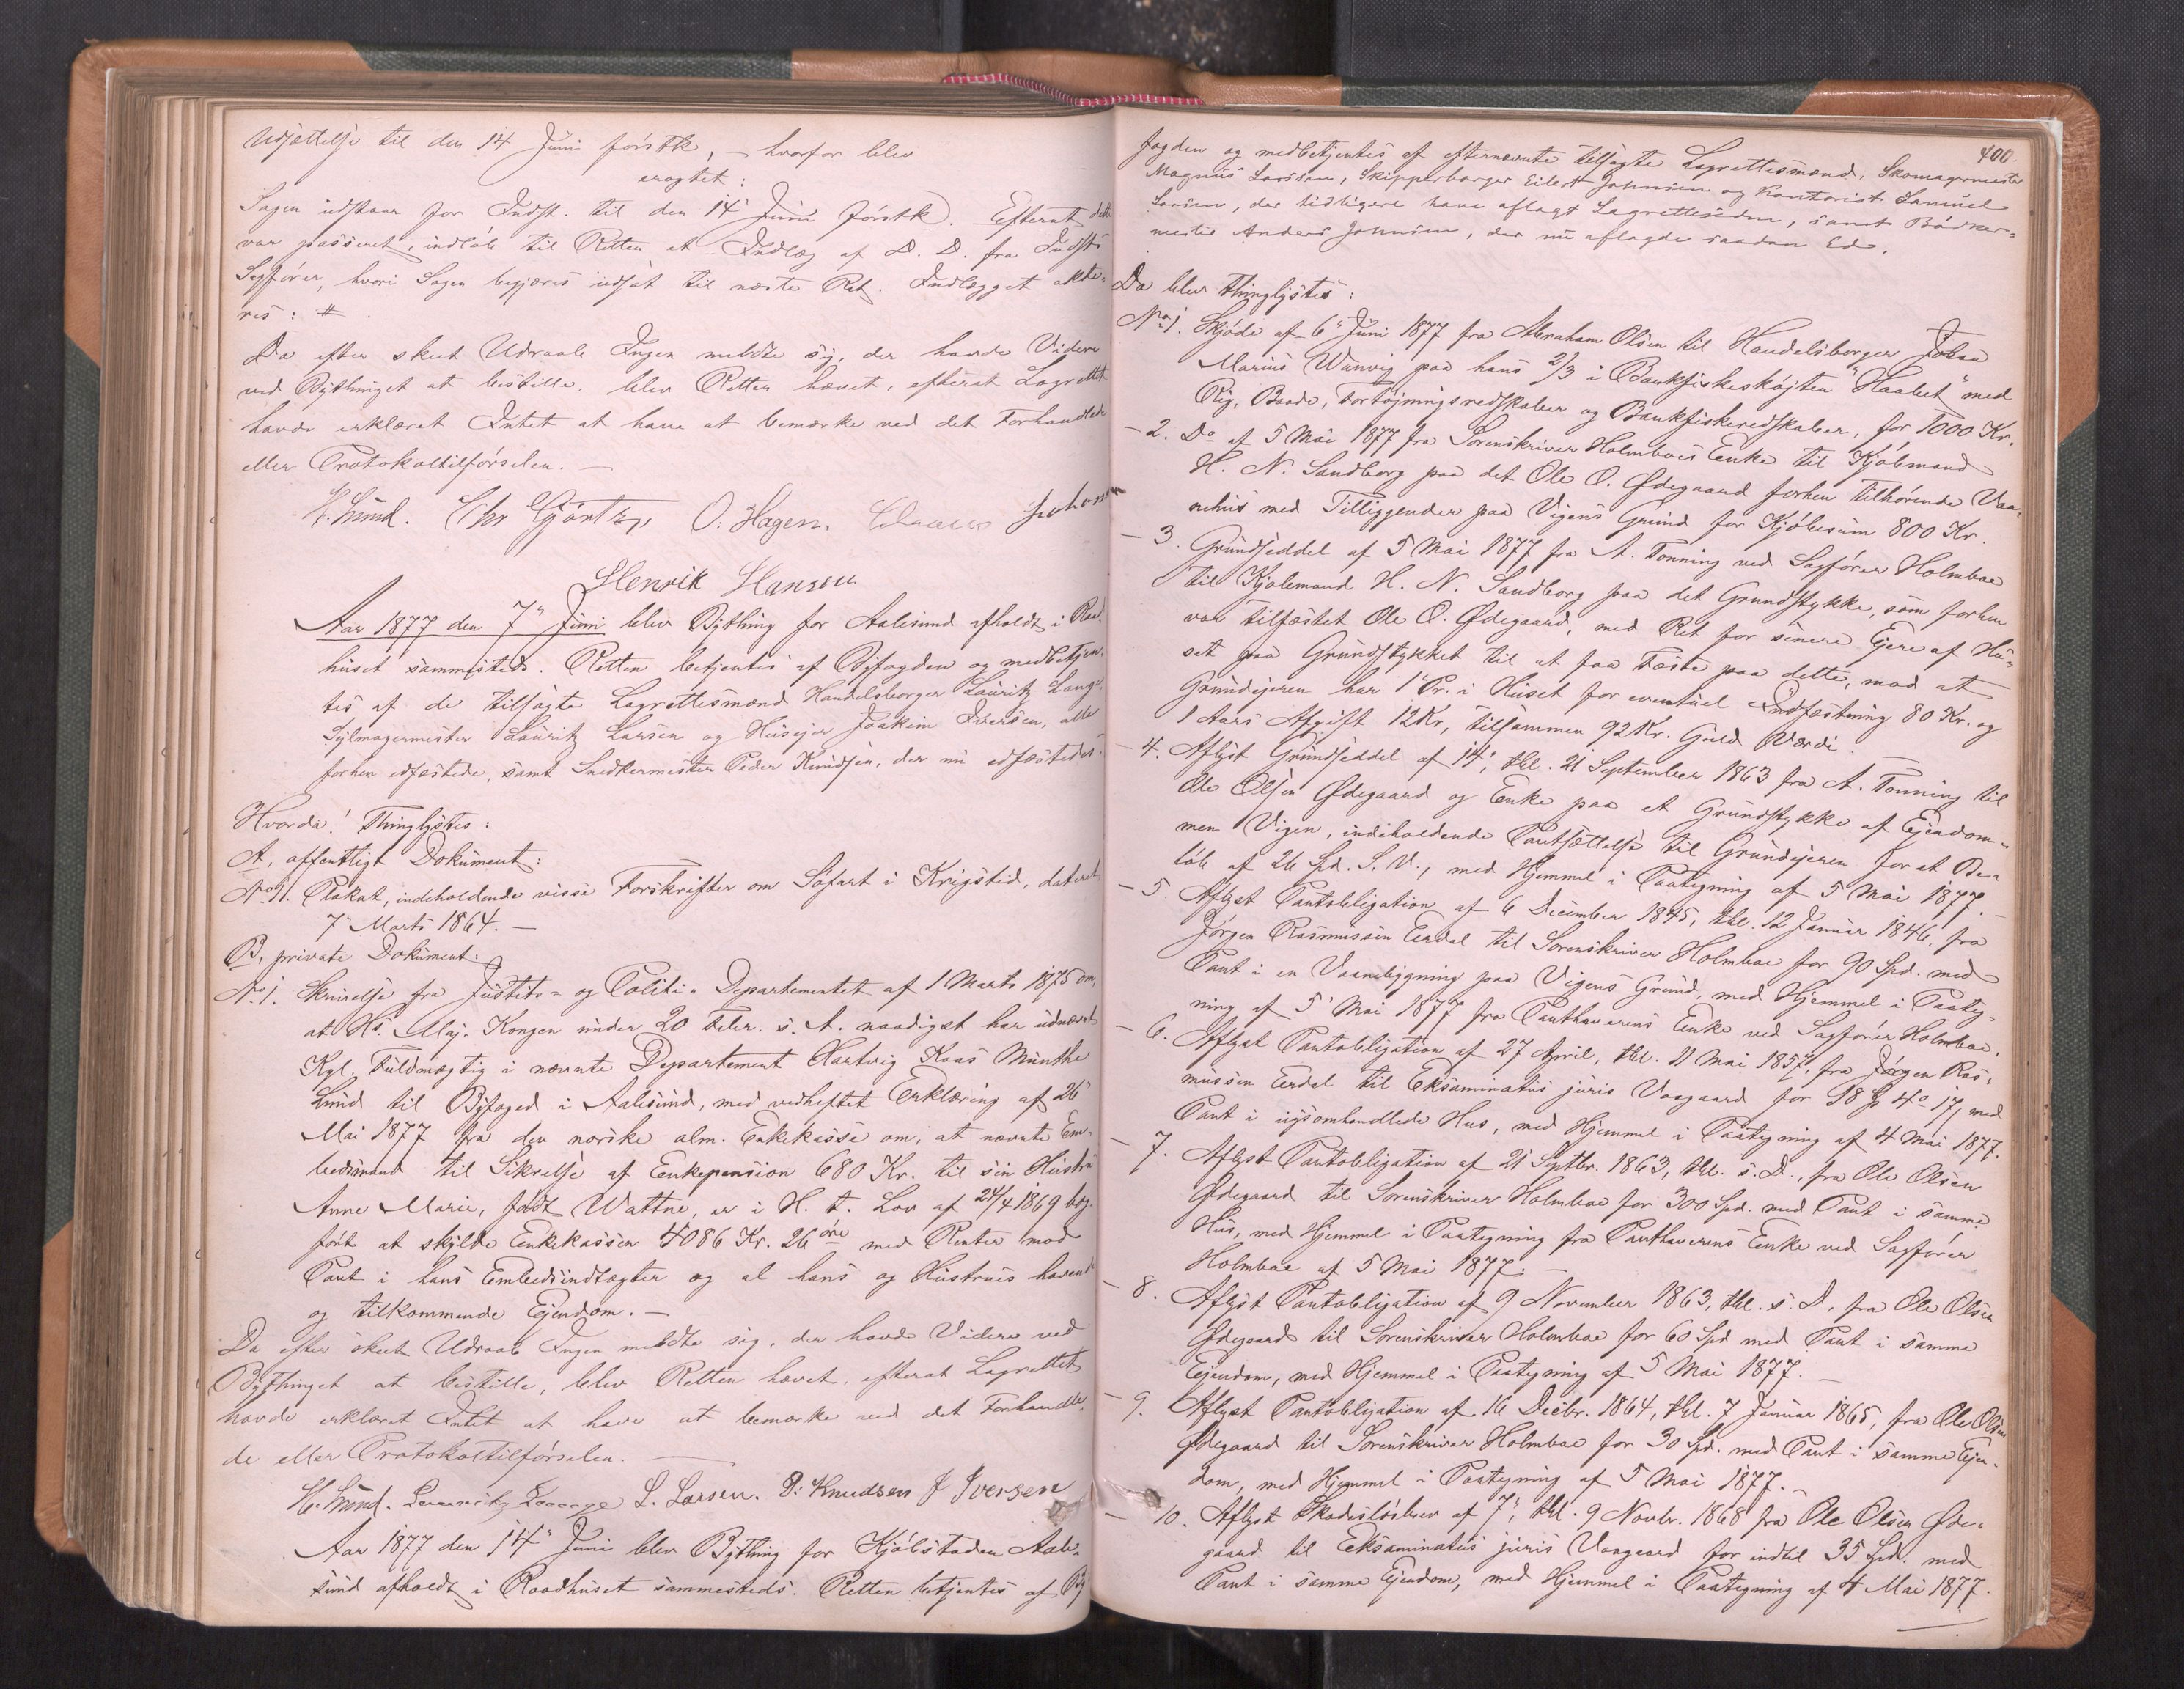 Udsættelse til den 14 Juni förstk, – hvorfor blev
eragtet:
Sagen udstaar for Indst. til den 14' Juni förstk. Efterat dette
var passeret, indlöb til Retten et Indlæg af D. D. fra Indsts
Sagförer, hvori Sagen begjæres udsat til næste Ret. Indlægget akte-
res: #.
Da efter skeet Udraab Ingen meldte sig, der havde Videre
ved Bythinget at bestille, blev Retten hævet, efterat Lagrettet
havde erklæret Intet at have at bemærke ved det Forhandlede
eller Protokoltilförselen. –
H. Lund. Chr Gjørtz, O: Hagen. Johansen
Henrik Hansen
Aar 1877 den 7" Juni blev Bything for Aalesund afholdt i Raad-
huset sammesteds. Retten betjentes af Byfogden og medbetjen-
tes af de tilsagte Lagrettesmænd Handelsborger Lauritz Lange,
Sejlmagermester Lauritz Larsen og Husejer Joakim Iversen, alle
forhen edfæstede, samt Snedkermester Peder Knudsen, der nu edfæstedes.
Hvorda! Thinglystes:
A, offentligt Dokument:
No 1. Plakat, indeholdende visse Forskrifter om Söfart i Krigstid, dateret
7" Marts 1864. –
B, private Dokument:
No 1. Skrivelse fra Justits- og Politi-Departementet af 1 Marts 1875 om,
at Hs. Maj. Kongen under 20 Febr. s. A. naadigst har udnævnt
Kgl. Fuldmægtig i nævnte Departement Hartvig Kaas Munthe
Lund til Byfoged i Aalesund, med vedheftet Erklæring af 26'
Mai 1877 fra den norske alm. Enkekasse om, at nævnte Em-
bedsmand til Sikrelse af Enkepension 680 Kr. til sin Hustru
Anne Marie, födt Wattne, er i H. t. Lov af 24/4 1869 bog-
fört at skylde Enkekassen 4086 Kr. 26 öre med Renter mod
Pant i hans Embedsindtægter og al hans og Hustrues havende
og tilkommende Ejendom. –
Da efter skeet Udraab Ingen meldte sig, der havde Videre ved
Bythinget at bestille, blev Retten hævet, efterat Lagrettet
havde erklæret Intet at have at bemærke ved det Forhandle-
de eller Protokoltilförselen. –
H. Lund. Lauritz Lange L. Larsen. P: Knudsen J Iversen
Aar 1877 den 14" Juni blev Bything for Kjöbstaden Aale-
sund afholdt i Raadhuset sammesteds. Retten betjentes af By
400.
fogden og medbetjentes af efternævnte tilsagte Lagrettesmænd, Skomagermester
Magnus Larssen, Skipperborger Eilert Johnsen og Kontorist Samuel
Larsen, der tidligere have aflagt Lagretteseden, samt Bödker-
mester Anders Johnsen, der nu aflagde saadan Ed.
Da blev thinglystes:
No 1. Skjöde af 6" Juni 1877 fra Abraham Olsen til Handelsborger Johan
Marius Wanvig paa hans 2/3 i Bankfiskeskøjten "Haabet" med
Rig, Baade, Fortøjningsredskaber og Bankfiskeredskaber, for 1000 Kr.
– 2. Do af 5 Mai 1877 fra Sorenskriver Holmboes Enke til Kjöbmand
H. N. Sandborg paa det Ole O. Ødegaard forhen tilhørende Vaa-
nehus med Tilliggender paa Vigens Grund for Kjöbesum 800 Kr.
– 3. Grundseddel af 5 Mai 1877 fra A. Tonning ved Sagförer Holmboe
til Kjöbmand H. N. Sandborg paa det Grundstykke, som forhen
var tilfæstet Ole O. Ødegaard, med Ret for senere Ejere af Hu-
set paa Grundstykket til at faa Fæste paa dette, mod at
Grundejeren har 1' Pr. i Huset for eventuel Indfæstning 80 Kr. og
1 Aars Afgift 12 Kr, tilsammen 92 Kr. Guld Værdi. –
– 4. Aflyst Grundseddel af 14', thl. 21 September 1863 fra A. Tonning til
Ole Olsen Ødegaard og Enke paa et Grundstykke af Ejendom-
men Vigen, indeholdende Pantsættelse til Grundejeren for et Be-
löb af 26 Spd. S. V., med Hjemmel i Paategning af 5 Mai 1877. –
– 5. Aflyst Pantobligation af 6 December 1845, thl. 12 Januar 1846, fra
Jörgen Rasmussen Erdal til Sorenskriver Holmboe for 90 Spd. med
Pant i en Vaanebygning paa Vigens Grund, med Hjemmel i Paateg-
ning af 5' Mai 1877 fra Panthaverens Enke ved Sagförer Holmboe.
– 6. Aflyst Pantobligation af 27 April, thl. 11 Mai 1857, fra Jörgen Ras-
mussen Erdal til Eksaminatus juris Vaagaard for 98 Sp 4 o 17, med
Pant i ugsomhandlede Hus, med Hjemmel i Paategning af 4 Mai 1877.
– 7. Aflyst Pantobligation af 21 Septbr. 1863, thl. s. D., fra Ole Olsen
Ødegaard til Sorenskriver Holmboe for 300 Spd. med Pant i samme
Hus, med Hjemmel i Paategning fra Panthaverens Enke ved Sagförer
Holmboe af 5 Mai 1877. –
– 8. Aflyst Pantobligation af 9 November 1863, thl. s. D, fra Ole Olsen
Ødegaard til Sorenskriver Holmboe for 60 Spd med Pant i samme
Ejendom, med Hjemmel i Paategning af 5 Mai 1877. –
– 9. Aflyst Pantobligation af 16 Decbr. 1864, thl. 7 Januar 1865, fra Ole Olsen
Ødegaard til Sorenskriver Holmboe for 30 Spd. med Pant i samme Ejen-
dom, med Hjemmel i Paategning af 5 Mai 1877. –
– 10. Aflyst Skadeslösbrev af 7", thl. 9 Novbr. 1868 fra Ole Olsen Øde-
gaard til Eksaminatus juris Vaagaard for indtil 35 Spd. med
Pant i samme Ejendom, med Hjemmel i Paategning af 4 Mai 1877.